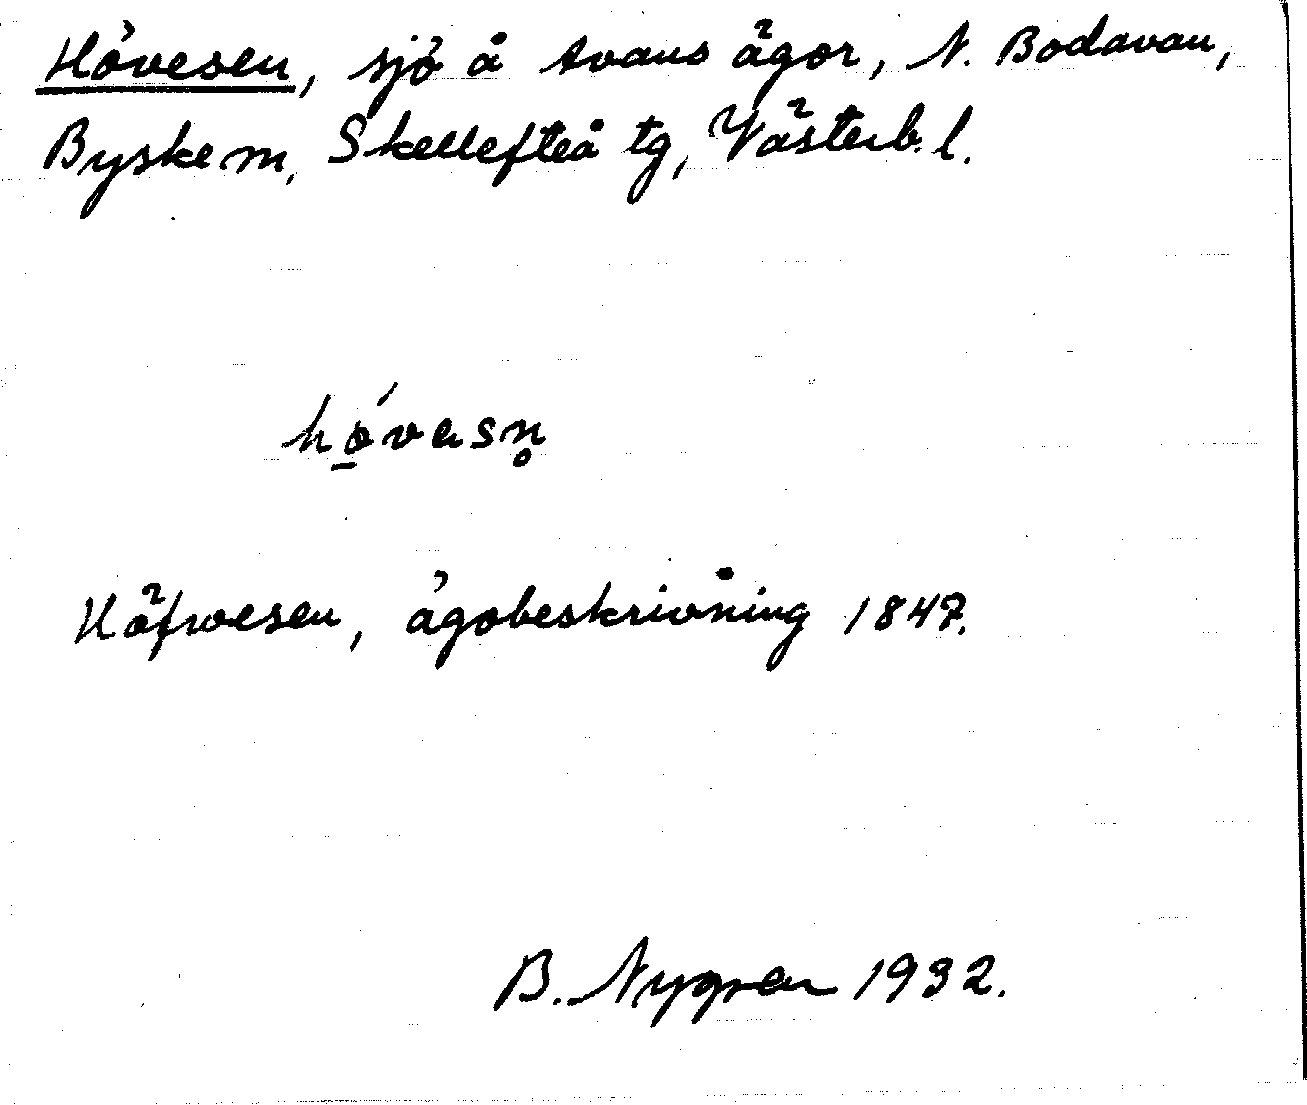 Hövesen, sjö å Avans ägor, N. Bodavan,
Byske m, Skellefteå tg, Västerb. l.
hö̱́vasn̥
Höfwesen, ägobeskrivning 1847.
B. Nygren 1932.